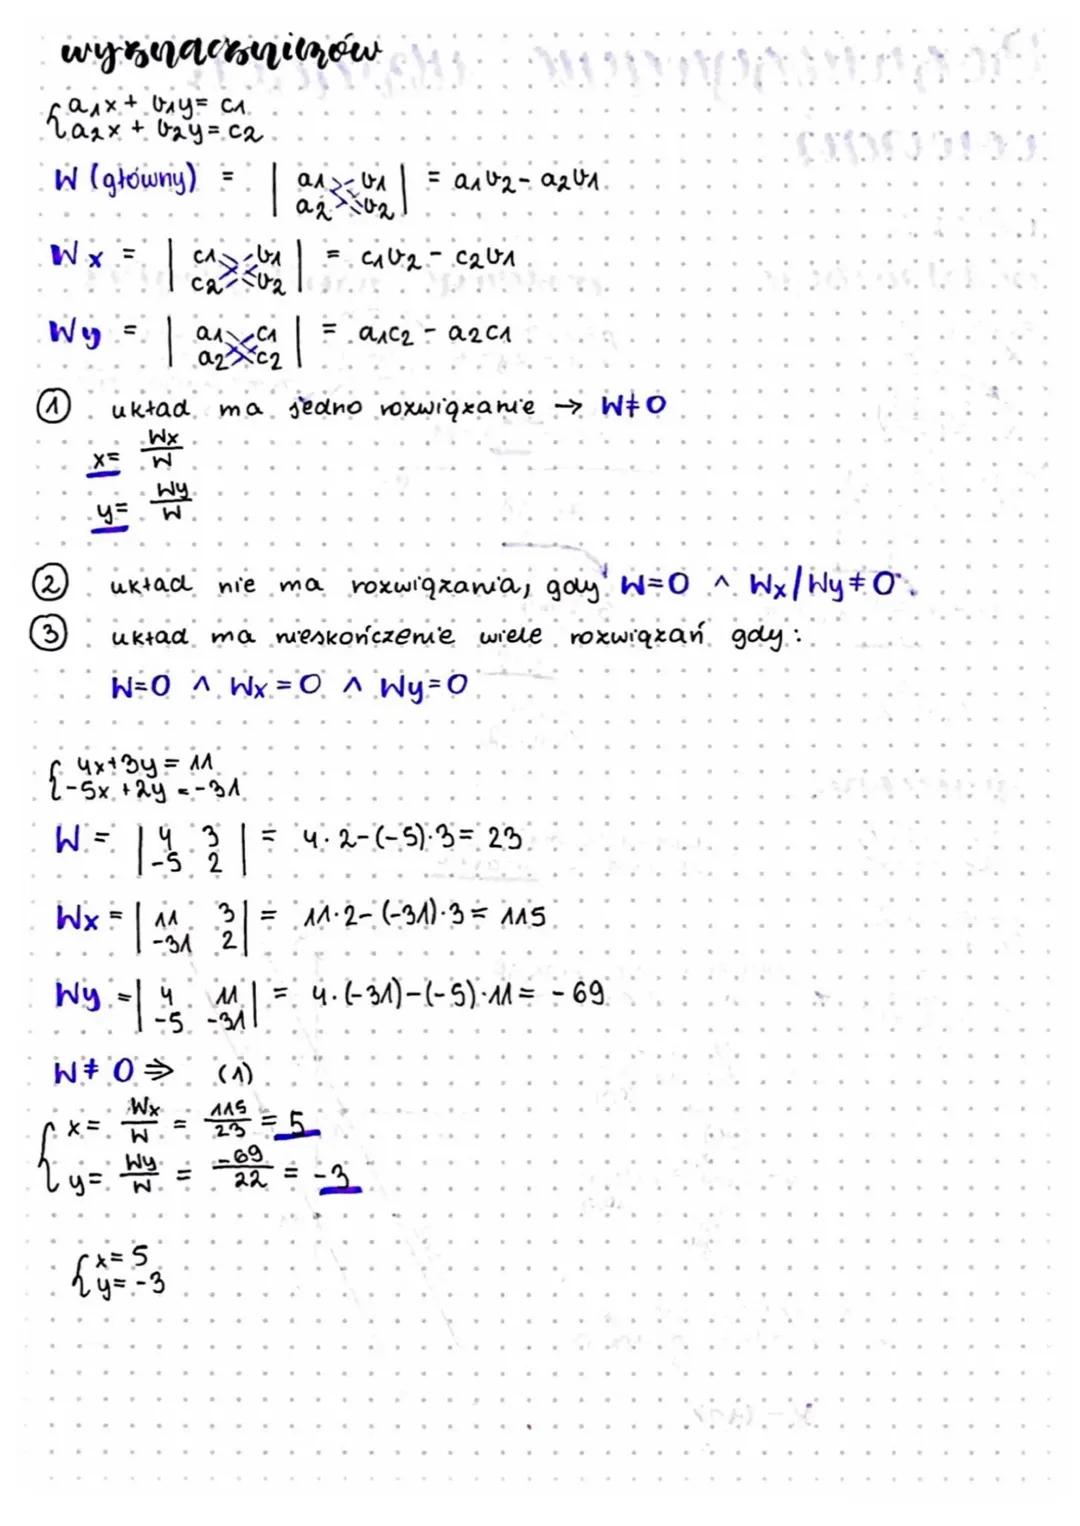 wyznaczników
{a₁x + b₁y = c₁
a₂x + b₂y = c₂
W (główny) = | a₁ b₁ | = a₁b₂ - a₂b₁
a₂ b₂
Wx = | c₁ b₁ | = c₁b₂ - c₂b₁
c₂ b₂
Wy = | a₁ c₁ | = a₁c₂ - a₂c₁
a₂ c₂
① układ ma jedno rozwiązanie → W≠0
x= Wx/W
y= Wy/W
② układ nie ma rozwiązania, gdy W=0 ∧ Wx/Wy≠0
③ układ ma nieskończenie wiele rozwiązań gdy:
W=0 ∧ Wx=0 ∧ Wy=0
{4x+3y = 11
-5x +2y = -31
W = | 4 3 | = 4·2-(-5)·3 = 23
-5 2
Wx = | 11 3 | = 11·2-(-31)·3 = 115
-31 2
Wy = | 4 11 | = 4·(-31)-(-5)·11 = -69
-5 -31
W≠0 ⇒ (1)
{x= Wx/W = 115/23 = 5
y= Wy/W = -69/22 = -3
{x= 5
y= -3